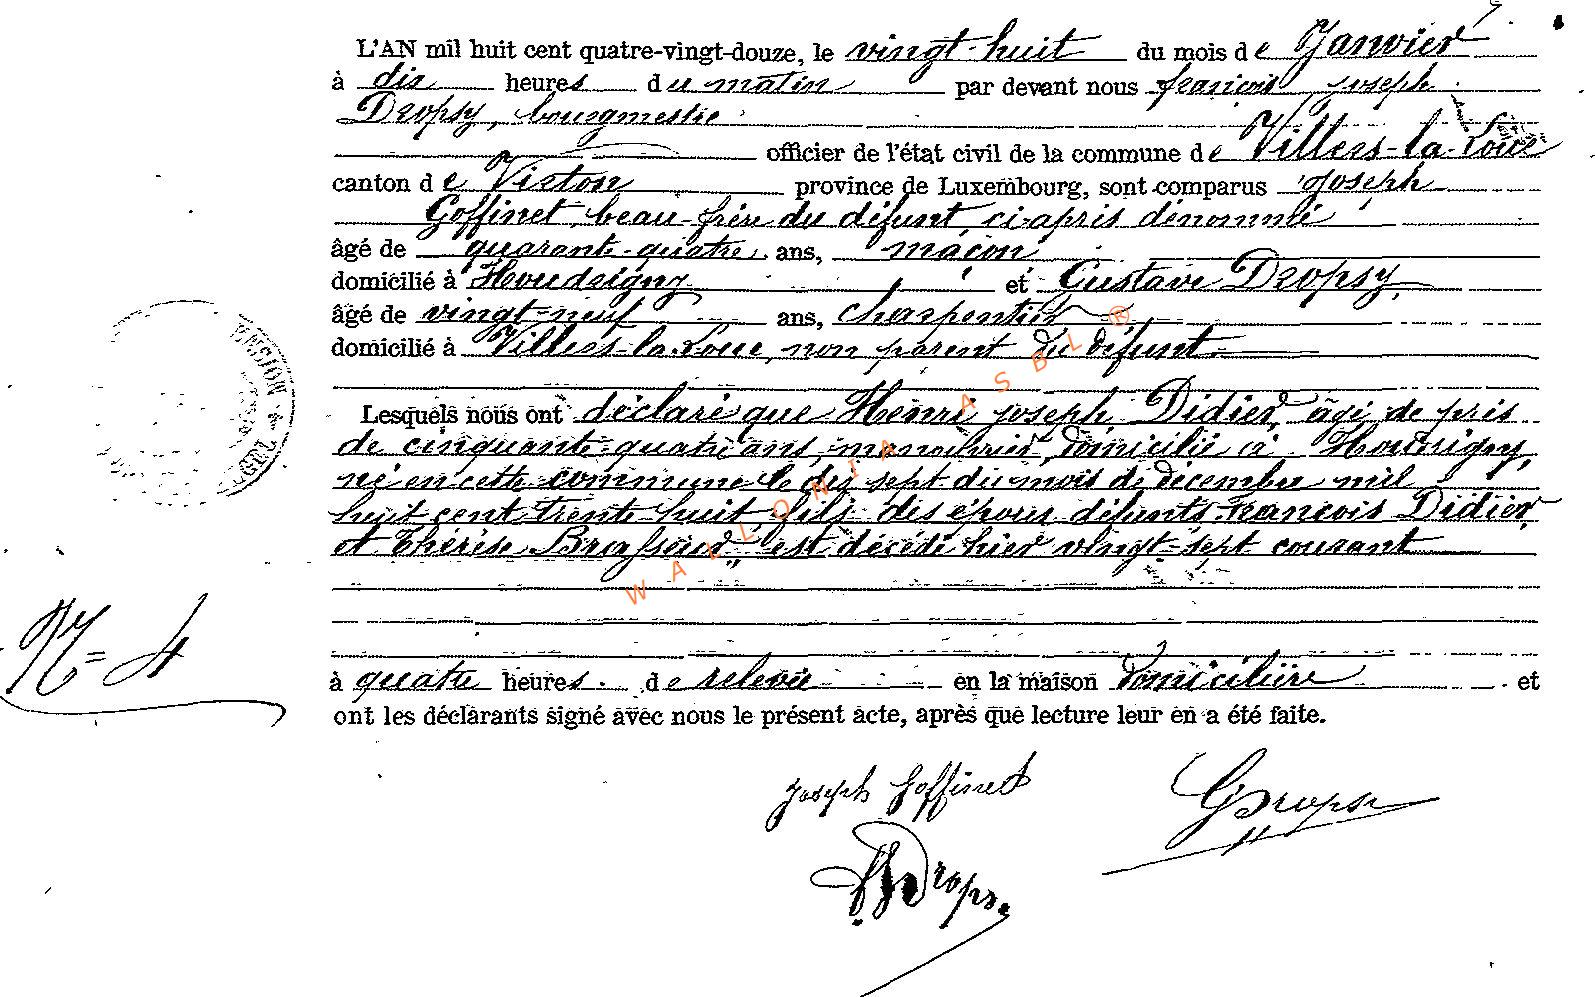 L'AN mil huit cent quatre-vingt-douze, le vingt-huit du mois de Janvier
à dix heures du matin par devant nous françois joseph
Dropsy, bourgmestre
officier de l'état civil de la commune de Villers-la-Loue
canton de Virton province de Luxembourg, sont comparus joseph
Goffinet, beau-frère du défunt ci-après dénommé
âgé de quarante-quatre ans, maçon
domicilié à Houdrigny et Gustave Dropsy,
âgé de vingt-neuf ans, charpentier
domicilié à Villers-la-Loue, non parent du défunt
Lesquels nous ont déclaré que Henri joseph Didier, âgé de près
de cinquante-quatre ans, manouvrier, domicilié à Houdrigny,
né en cette commune le dix sept du mois de décembre mil
huit cent trente-huit, fils des époux défunts François Didier
et Thérèse Brasseur, est décédé hier vingt-sept courant
N° 4
à quatre heures de relevée en la maison domicilière et
ont les déclarants signé avec nous le présent acte, après que lecture leur en a été faite.
joseph Goffinet
GDropsy
fjDropsy
WALLONIA ASBL ®